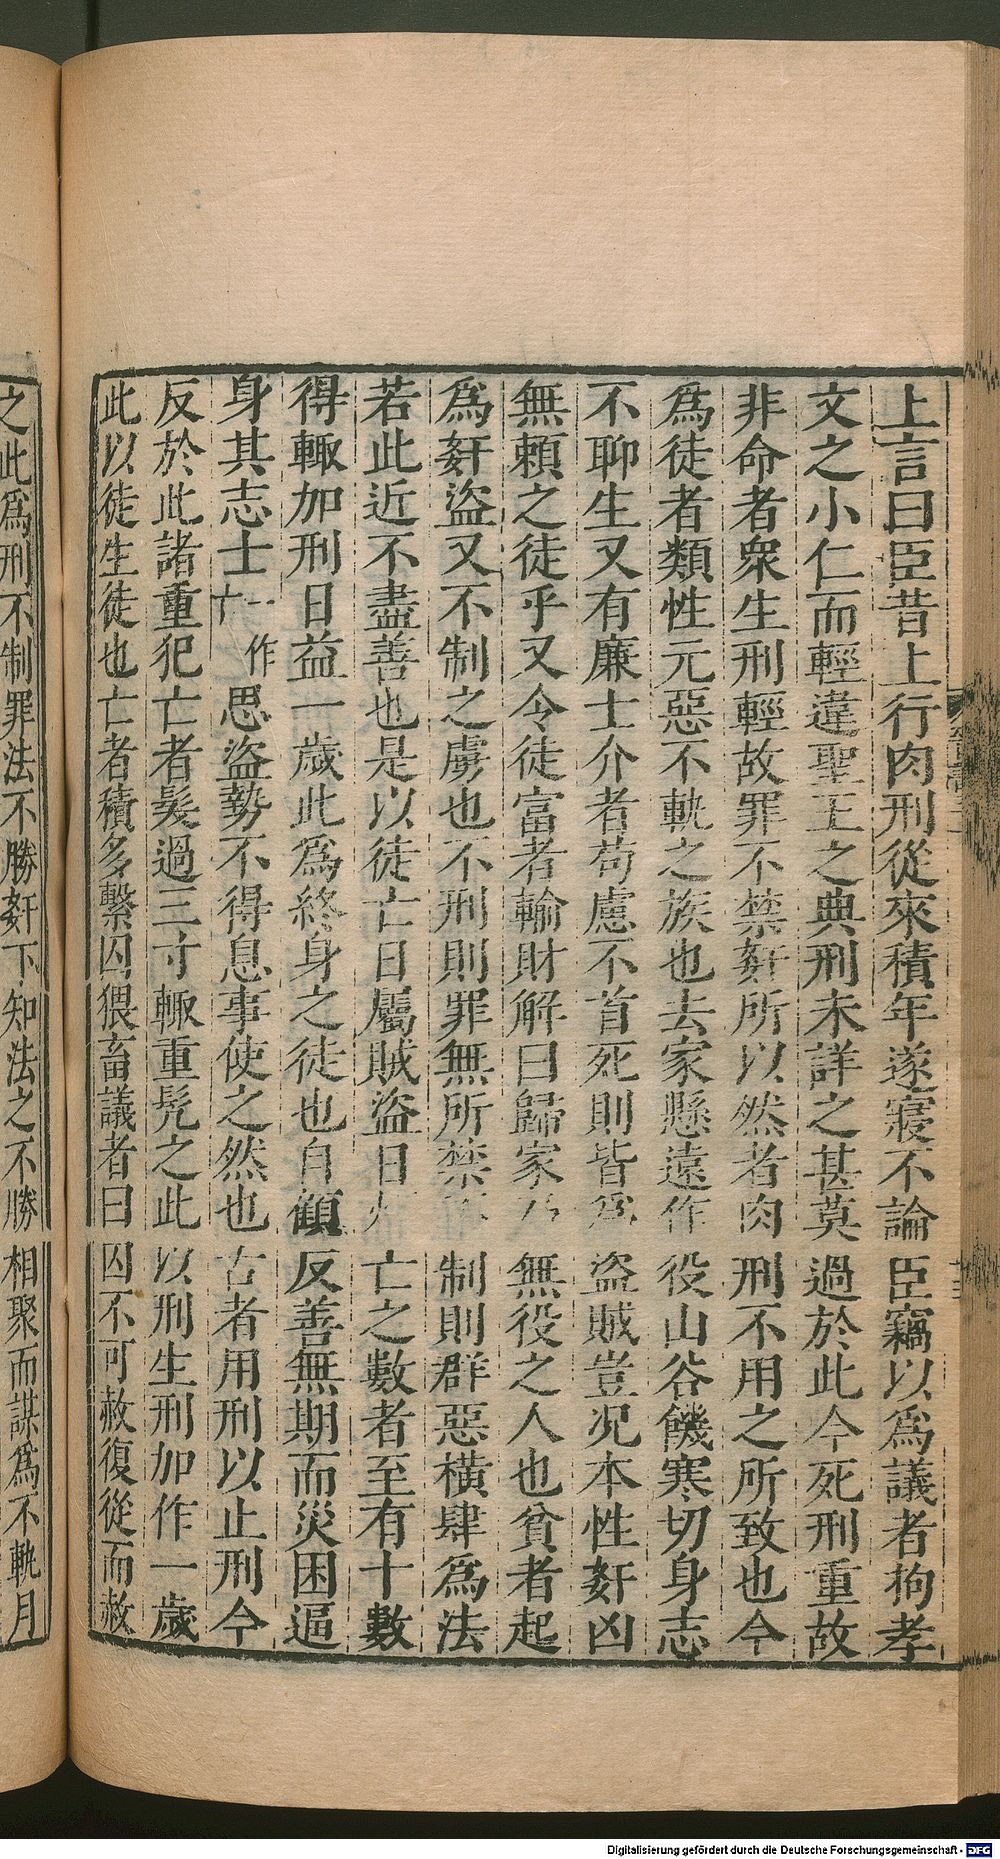 上言曰臣昔上行肉刑從來積年遂寢不論臣竊以爲議者拘孝
文之小仁而輕違聖王之典刑未詳之甚莫過於此今死刑重故
非命者衆生刑輕故罪不禁姧所以然者肉刑不用之所致也今
爲徒者類性元惡不軌之族也去家懸遠作役山谷饑寒切身志
不聊生又有廉士介者苟慮不首死則皆爲盜賊豈況本性姧凶
無賴之徒乎又令徒富者輸財解日歸家乃無役之人也貧者起
爲姧盜又不制之虜也不刑則罪無所禁制則群惡橫肆爲法
若此近不盡善也是以徒亡日屬賊盜日亡之數者至有十數
得輙加刑日益一歲此爲終身之徒也自顧反善無期而災困逼
身其志士一作亡思盜勢不得息事使之然也古者用刑以止刑今
反於此諸重犯亡者髮過三寸輙重髠之此以刑生刑加作一歲
此以徒生徒也亡者積多繫囚猥畜議者曰囚不可赦復從而赦
之此爲刑不制罪法不勝姧下知法之不勝相聚而謀爲不軌月
Digitalisierung gefördert durch die Deutsche Forschungsgemeinschaft - DFG